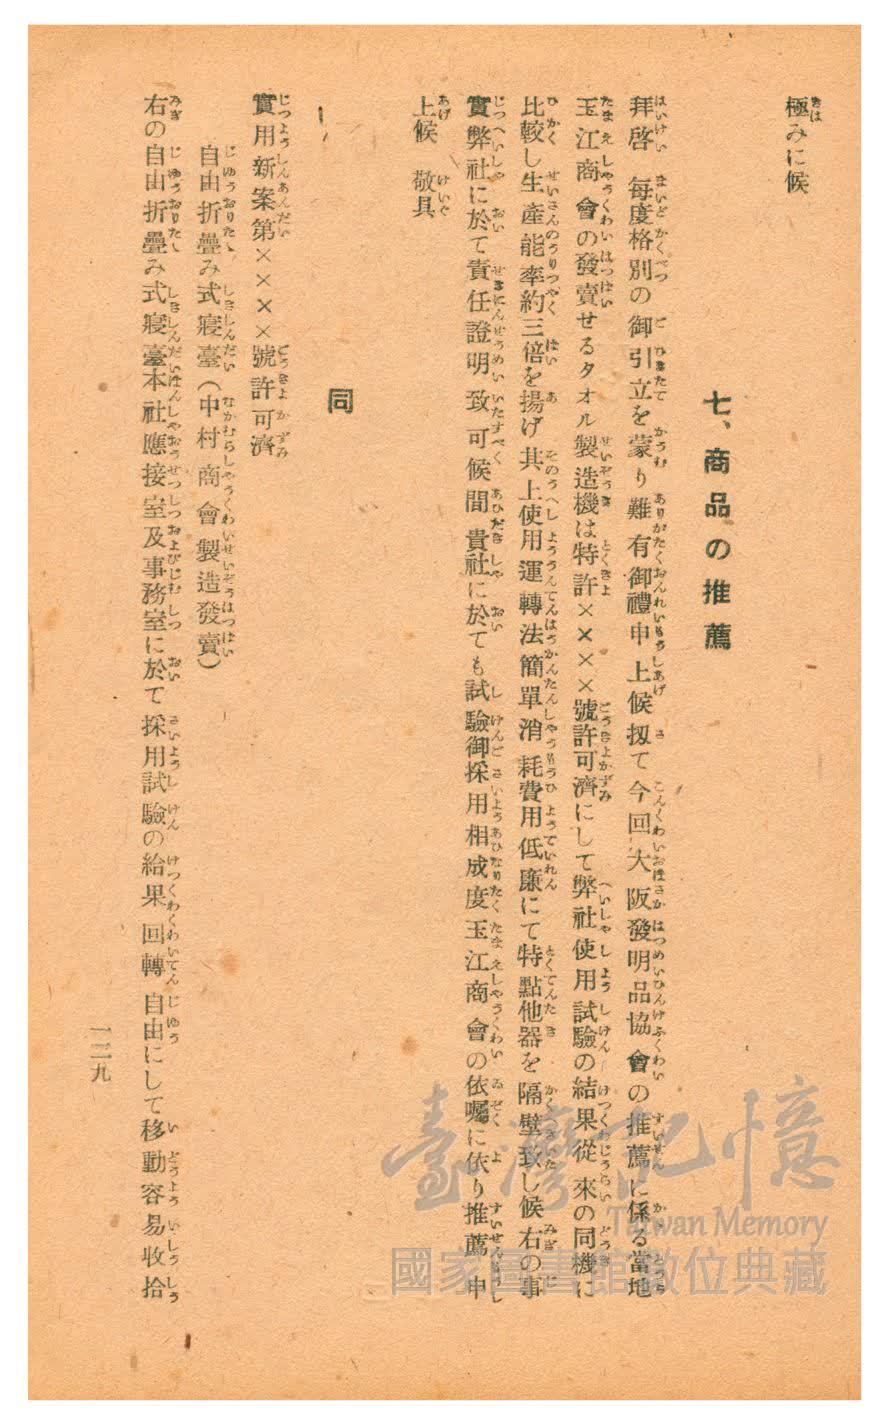 極みに候
七、商品の推薦
拜啓 毎度格別の御引立を蒙り難有御禮申上候扨て今回大阪發明品協會の推薦に係る當地
玉江商會の發賣せるタオル製造機は特許×××號許可濟にして弊社使用試驗の結果從來の同機に
比較し生産能率約三倍を揚げ其上使用運轉法簡單消耗費用低廉にて特點他器を隔壁致し候右の事
實弊社に於て責任證明致可候間貴社に於ても試驗御採用相成度玉江商會の依囑に依り推薦申
上候 敬具
同
實用新案第××××號許可濟
自由折疊み式寢臺(中村商會製造發賣)
右の自由折疊み式寢臺本社應接室及事務室に於て採用試驗の給果回轉自由にして移動容易收拾
一二九
臺灣記憶
Taiwan Memory
國家圖書館數位典藏